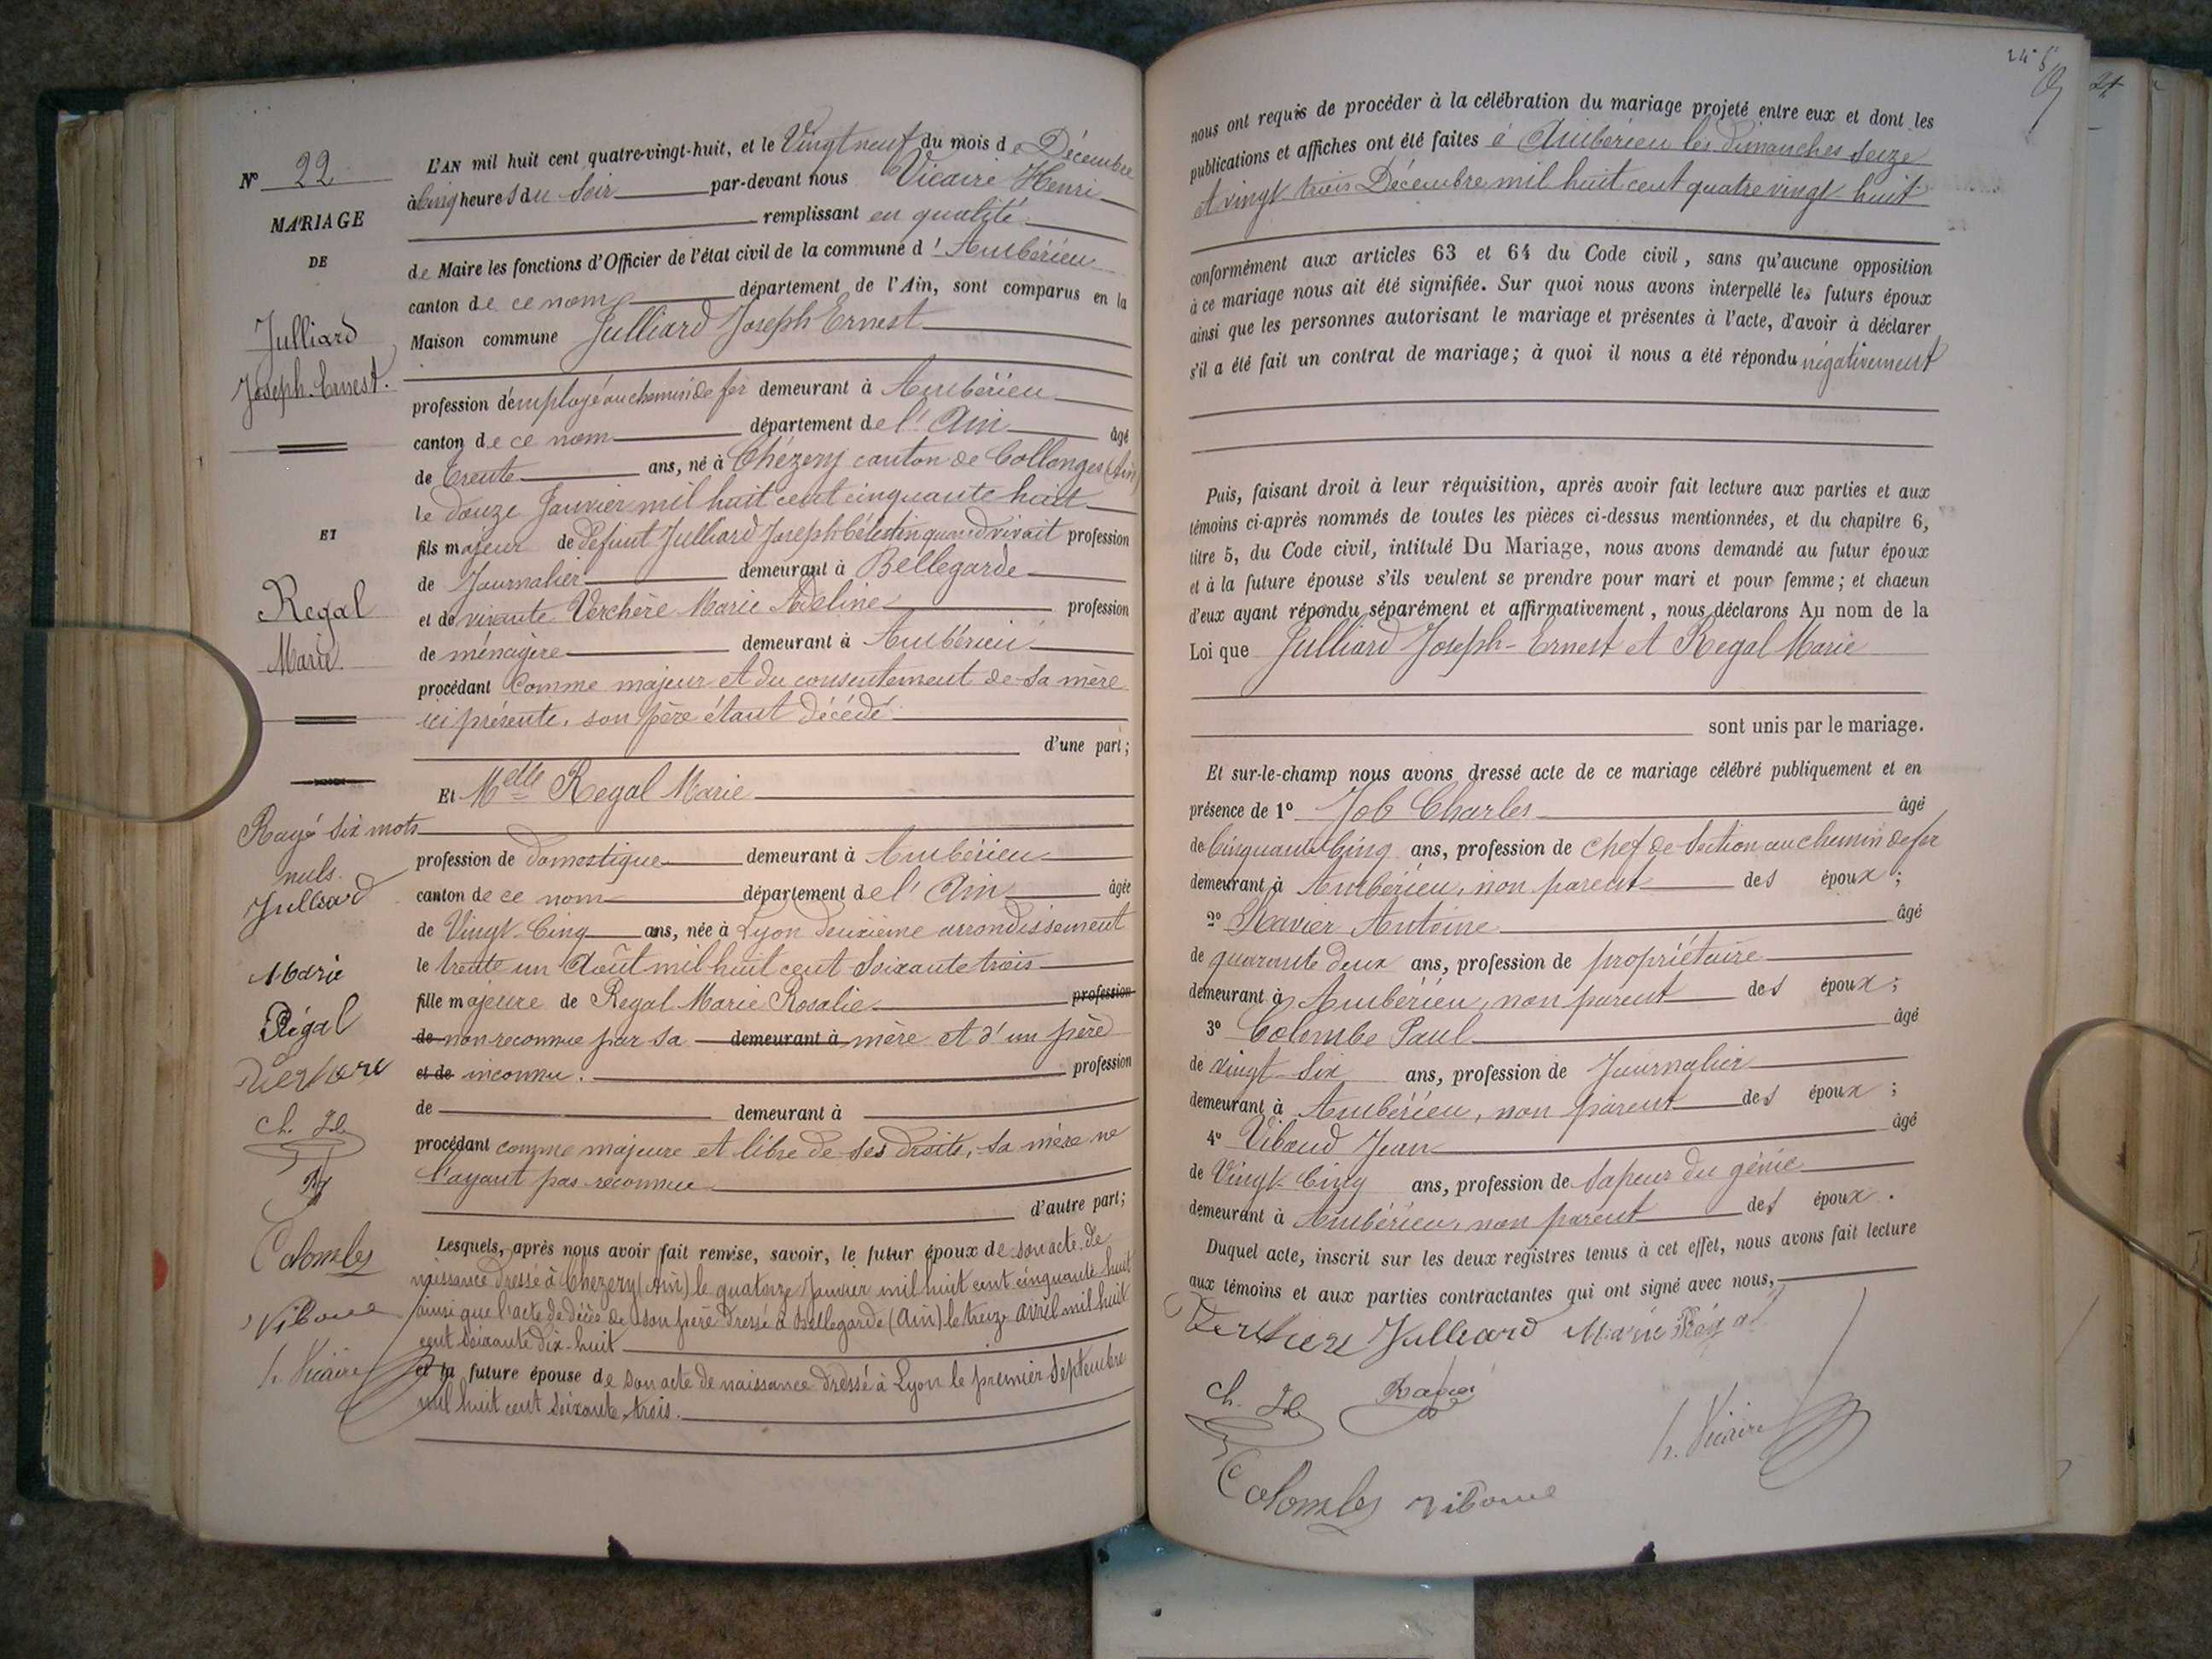 N° 22
MARIAGE
DE
Julliard
Joseph-Ernest.
ET
Regal
Marie.
Rayé six mots
nuls.
Julliard
Marie
Régal
Verchere
Ch. Job
Colombes
h. Vicaire
L'AN mil huit cent quatre-vingt-huit, et le Vingt neuf du mois de Décembre
à Cinq heures du Soir par-devant nous Vicaire Henri
remplissant en qualité
de Maire les fonctions d'Officier de l'état civil de la commune d'Ambérieu
canton de ce nom département de l'Ain, sont comparus en la
Maison commune Julliard Joseph Ernest
profession d'employé au chemin de fer demeurant à Ambérieu
canton de ce nom département de l'Ain âgé
de Trente ans, né à Chézery canton de Collonges (Ain)
le douze Janvier mil huit cent cinquante huit
fils majeur de défunt Julliard Joseph Célestin quand vivait profession
de Journalier demeurant à Bellegarde
et de vivante Verchère Marie Adeline profession
de ménagère demeurant à Ambérieu
procédant Comme majeur et du consentement de sa mère
ici présente, son père étant décédé
d'une part;
Et Melle Regal Marie
profession de domestique demeurant à Ambérieu
canton de ce nom département de l'Ain âgée
de Vingt-Cinq ans, née à Lyon deuxième arrondissement
le trente un Août mil huit cent soixante trois
fille majeure de Regal Marie Rosalie profession
de non reconnue par sa demeurant à mère et d'un père
et de inconnu. profession
de demeurant à
procédant comme majeure et libre de ses droits, sa mère ne
l'ayant pas reconnue
d'autre part;
Lesquels, après nous avoir fait remise, savoir, le futur époux de son acte de
naissance dressé à Chézery (Ain) le quatorze Janvier mil huit cent cinquante huit
ainsi que l'acte de décès de son père dressé à Bellegarde (Ain) le treize avril mil huit
cent soixante dix-huit
et la future épouse de son acte de naissance dressé à Lyon le premier Septembre
mil huit cent soixante trois.
nous ont requis de procéder à la célébration du mariage projeté entre eux et dont les
publications et affiches ont été faites à Ambérieu les dimanches seize
et vingt trois Décembre mil huit cent quatre vingt huit
conformément aux articles 63 et 64 du Code civil, sans qu'aucune opposition
à ce mariage nous ait été signifiée. Sur quoi nous avons interpellé les futurs époux
ainsi que les personnes autorisant le mariage et présentes à l'acte, d'avoir à déclarer
s'il a été fait un contrat de mariage; à quoi il nous a été répondu négativement
Puis, faisant droit à leur réquisition, après avoir fait lecture aux parties et aux
témoins ci-après nommés de toutes les pièces ci-dessus mentionnées, et du chapitre 6,
titre 5, du Code civil, intitulé Du Mariage, nous avons demandé au futur époux
et à la future épouse s'ils veulent se prendre pour mari et pour femme; et chacun
d'eux ayant répondu séparément et affirmativement, nous déclarons Au nom de la
Loi que Julliard Joseph-Ernest et Regal Marie
sont unis par le mariage.
Et sur-le-champ nous avons dressé acte de ce mariage célébré publiquement et en
présence de 1° Job Charles âgé
de Cinquante Cinq ans, profession de Chef de Section au chemin de fer
demeurant à Ambérieu, non parent des époux;
2° Ravier Antoine âgé
de quarante deux ans, profession de propriétaire
demeurant à Ambérieu, non parent des époux;
3° Colombe Paul âgé
de vingt six ans, profession de Journalier
demeurant à Ambérieu, non parent des époux;
4° Viboud Jean âgé
de Vingt-Cinq ans, profession de Sapeur du génie
demeurant à Ambérieu, non parent des époux.
Duquel acte, inscrit sur les deux registres tenus à cet effet, nous avons fait lecture
aux témoins et aux parties contractantes qui ont signé avec nous,
Verchere Julliard Marie Régal
Ch. Job Ravier
h. Vicaire
Colombes